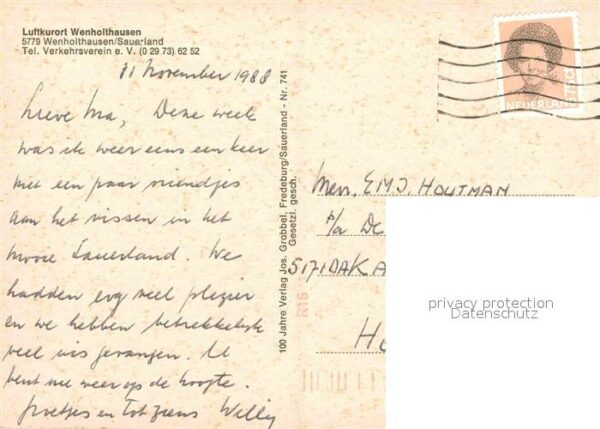 Luftkurort Wenholthausen
5779 Wenholthausen/Sauerland
Tel. Verkehrsverein e. V. (0 29 73) 62 52
11 november 1988
Lieve Ma, Deze week
was ik weer eens een keer
met een paar vriendjes
aan het vissen in het
mooie Sauerland. We
hadden erg veel plezier
en we hebben betrekkelijk
veel vis gevangen. U
bent nu weer op de hoogte.
Groetjes en tot ziens Willy
100 Jahre Verlag Jos. Grobbel, Fredeburg/Sauerland - Nr. 741
Gesetzl. gesch.
R16
75c
NEDERLAND
Mevr. E.M.J. HOUTMAN
p/a DE
5171DAK A
privacy protection
Datenschutz